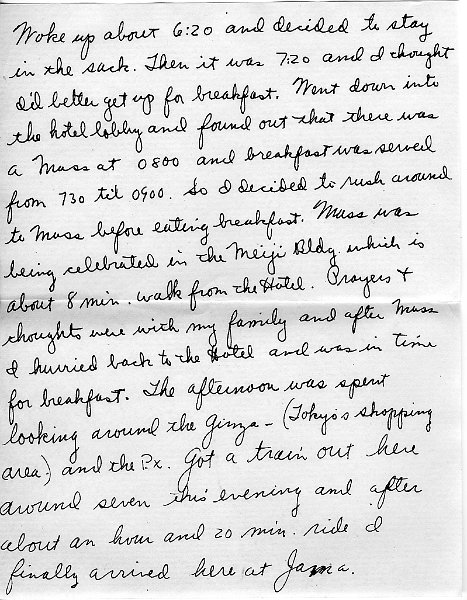 Woke up about 6:20 and decided to stay
in the sack. Then it was 7:20 and I thought
I'd better get up for breakfast. Went down into
the hotel lobby and found out that there was
a Mass at 0800 and breakfast was served
from 730 til 0900. So I decided to rush around
to Mass before eating breakfast. Mass was
being celebrated in the Meiji Bldg which is
about 8 min. walk from the Hotel. Prayers +
thoughts were with my family and after Mass
I hurried back to the Hotel and was in time
for breakfast. The afternoon was spent
looking around the Ginza - (Tokyo's shopping
area) and the Px. Got a train out here
around seven this evening and after
about an hour and 20 min. ride I
finally arrived here at Jama.